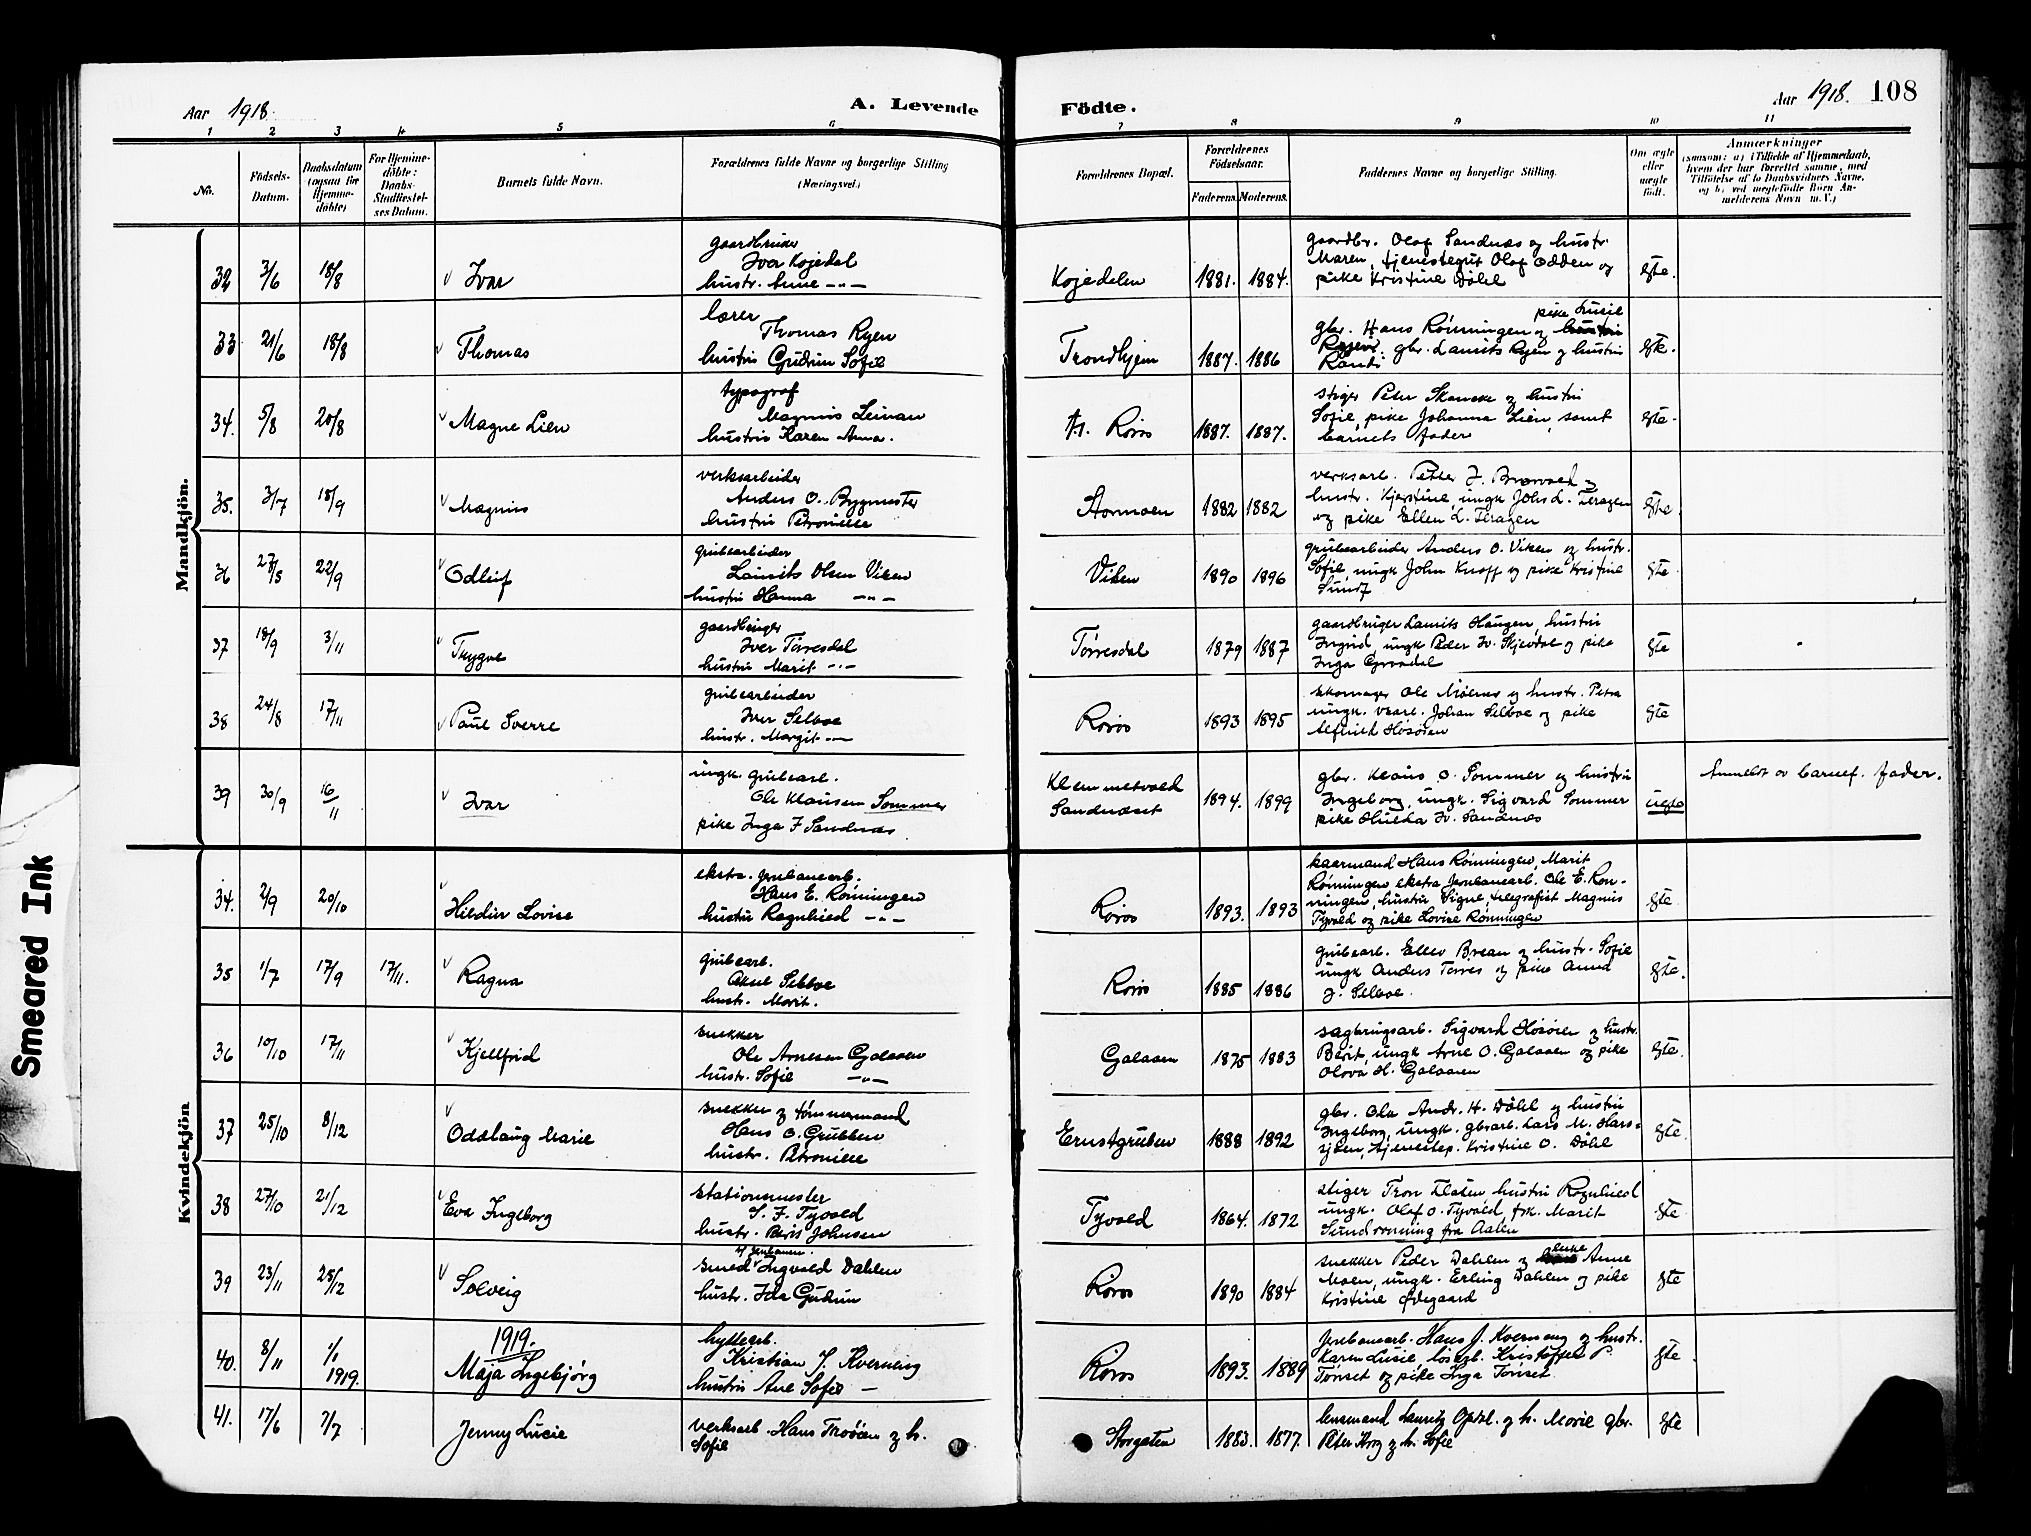 Aar 1918.
A. Levende Födte.
Aar 1918. 108
1 2 3 4 5 6 7 8 9 10 11
No.
Födsels-Datum.
Daabsdatum (ogsaa for Hjemme-döbte)
For Hjemme-döbte: Daabs-Stadfæstel-ses Datum.
Barnets fulde Navn.
Forældrenes fulde Navne og borgerlige Stilling (Næringsvei.)
Forældrenes Bopæl.
Forældrenes Födselsaar.
Faderens. Moderens.
Faddernes Navne og borgerlige Stilling.
Om ægte eller uægte födt.
Anmærkninger
(saasom: a) i Tilfælde af Hjemmedaab, hvem der har forrettet samme, med Tilföielse af to Daabsvidners Navne, og b) ved uægtefödte Börn Anmelderens Navn m. V.)
Mandkjön.
32 3/6 18/8 Ivar gaardbruker Iver Kojedal hustr. Anne -"- Kojedalen 1881. 1884. gaardbr. Olaf Sandnæs og hustr. Maren, tjenestegut Olaf Odden og pike Kristine Döhl egte.
33 21/6 18/8 Thomas lærer Thomas Ryen hustru Gudrun Sofie Trondhjem 1887. 1886 gbr. Hans Rönningen og pike Lusie gbr. Laurits Ryen og hustru Randi egte.
34. 5/8 20/8 Magne Lien typograf Magnus Leinan hustru Karen Anna. Röros 1887. 1887. stiger Peter Skancke og hustru Sofie, pike Johanna Lien, samt barnets fader egte.
35. 3/7 18/9 Magnus verksarbeider Anders O. Bygmester hustru Petronelle Stormoen 1882 1882 verksarb. Petter J. hustr. Kjerstine, ungk. Johs L. Feragen og pike Ellen L. Feragen egte
36 27/5 22/9 Odleif grubearbeider Laurits Olsen Viken hustru Hanna -"- Viken 1890 1896 grubearbeider Anders O. Viken og hustr. Sofie, ungk John Knoff og pike Kristine Sund egte
37 18/9 3/11 Trygve gaardbruger Iver Törresdal hustru Marit -"- Törresdal 1879 1887 gaardbruger Laurits Haugen, hustru Ingrid, ungk Peder Iv. Skjevdal og pike Inga egte
38 24/8 17/11 Paul Sverre grubearbeider Iver Selboe hustr. Margit -"- Röros 1893 1895 skomager Ole og hustr. Petra ungk. Johan Selboe og pike Alfhild Hosöien egte
39 30/9 16/11 Ivar ungk. grubearb. Ole Klausen Sommer pike Inga J Sandnæs Klemmetvold Sandneset 1894. 1899 gbr. Klaus O. Sommer og hustru Ingeborg, ungk. Sigvard Sommer pike Hulda Iv. Sandnæs uegte Anmeldt av barnef. fader.
Kvindekjön
34. 2/9 20/10 Hildur Lovise ekstra. jernbanearb. Hans E. Rönningen hustru Ragnhild -"- Röros 1893. 1893 kaarmand Hans Rönningen, Marit Rönningen ekstra jernbanearb. Ole E. Rönningen, hustru Signe, telegrafist Magnus Tyvold og pike Lovise Rönningen egte
35 1/7 17/9 17/11. Ragna grubearb. Aksel Selboe hustr. Marit. Röros 1885 1886 grubearb. Ellev Brean og hustr. Sofie ungk Anders Torres og pike Anna J. Selboe. egte.
36 10/10 17/11 Kjellfrid snekker Ole Arnesen Galaaen hustr. Sofie -"- Galaaen 1875 1883 sagbrugsarb. Sigvard Hosöien og hustr. Berit, ungk Arne O. Galaaen og pike Olava H. Galaaen egte.
37 25/10 8/12 Oddlaug Marie snekker og tömmermand Hans O. Grubben hustr. Petronelle Ernstgruben 1888 1892 gbr. Ole Andr. H. Döhl og hustru Ingeborg, ungk. gbrarb. Lars M. Harsjöen, tjenestep. Kristine O. Döhl egte
38 27/10 21/12 Eva Ingeborg stationsmester S. J. Tyvold hustr. Beris Johnsen Tyvold 1864. 1872 stiger Tron Flaten, hustru Ragnhild ungk. Olaf O. Tyvold, frk. Marit Sundrönning fra Aalen egte
39 23/11 25/12 Solveig smed v/ jernbanen. Ingvald Dahlen hustr. Ida Gudrun Röros 1890 1884 snekker Peder Dahlen og enke Anne Moen, ungk. Erling Dahlen og pike Kristine Ödegaard egte
40. 8/11 1/1 1919. 1919. Maja Ingebjörg hyttearb. Kristian J. Kverneng hustru Ane Sofie - Röros 1893. 1889 jernbanearb. Hans J. Kverneng og hustr. Karen Lusie, Kristoffer P. Tönset og pike Inga Tönset. egte
41. 17/6 7/7 Jenny Lucie verksarb. Hans Trööen og h. Sofie Storgaten 1883. 1877. lensmand Lauritz Opdal og h. Marie gbr. Peter Krog og h. Sofie egte
Smeared Ink